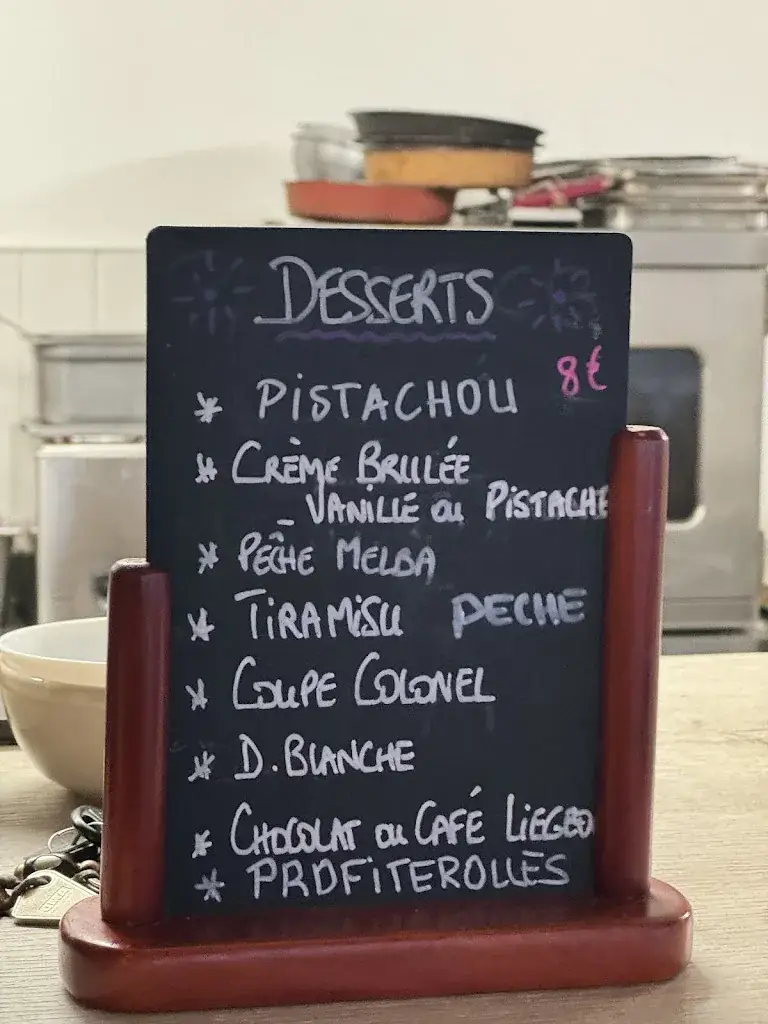 DESSERTS
8€
* PISTACHOU
* CRÈME BRULÉE
VANILLE ou PISTACHE
* PÊCHE MELBA
* TIRAMISU PECHE
* COUPE COLONEL
* D. BLANCHE
* CHOCOLAT ou CAFÉ LIEGEO
* PROFITEROLLES